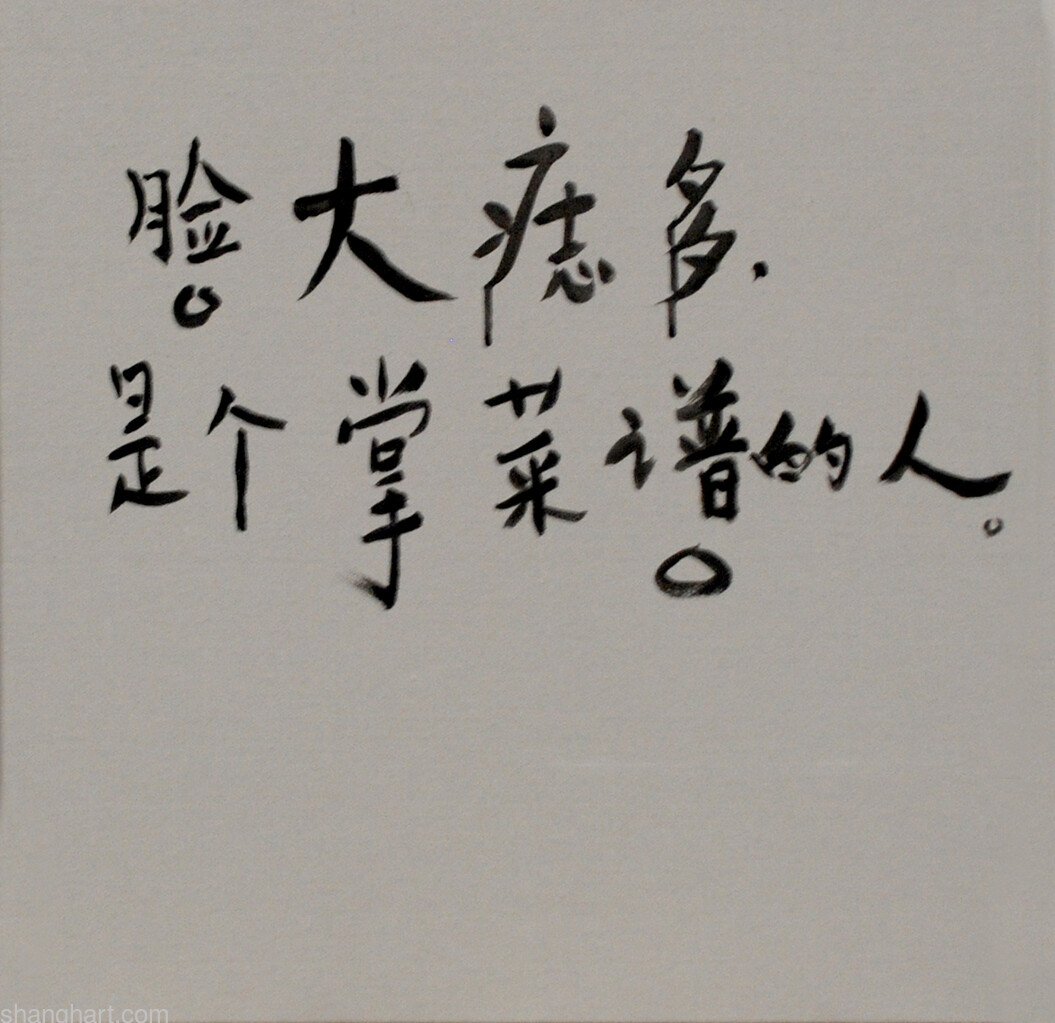 脸大痣多.
是个掌菜谱的人。
shanghart.com